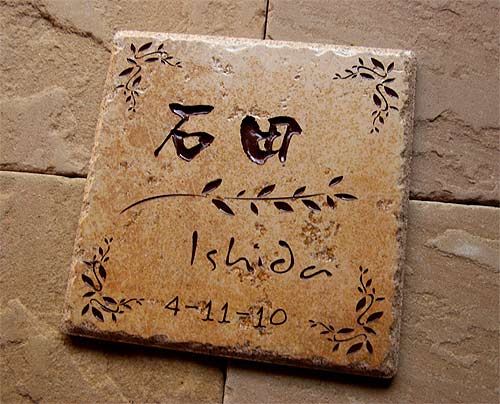 石田
Ishida
4-11-10